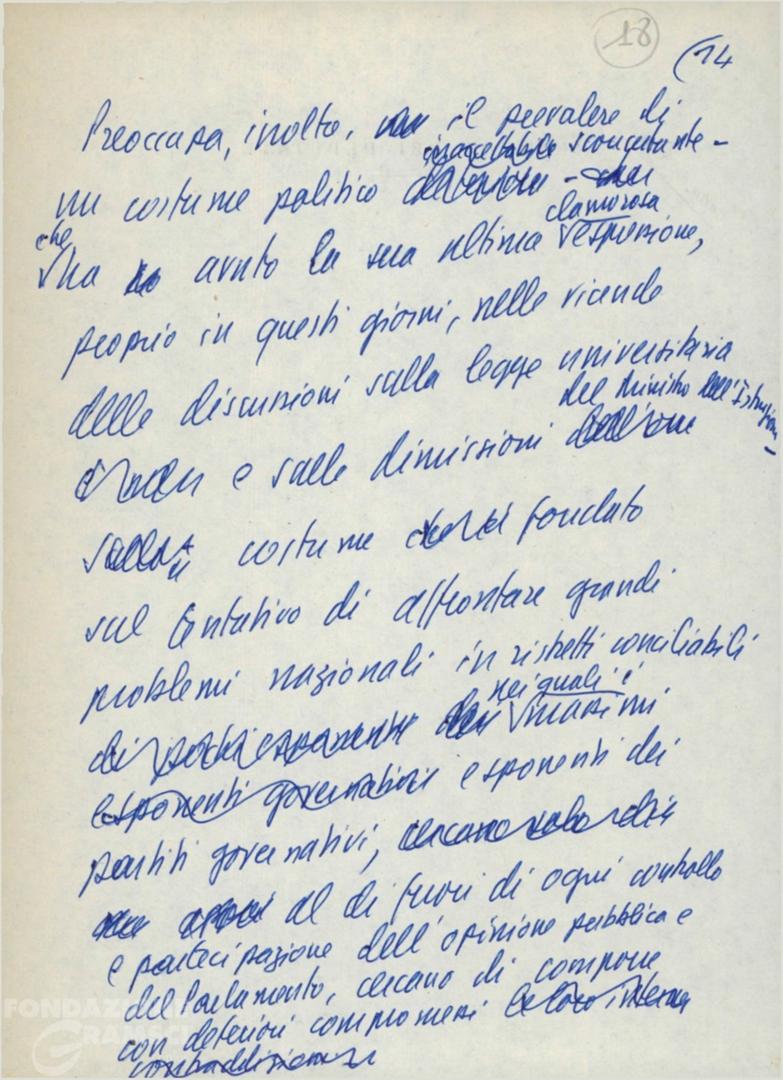 18
(14
Preoccupa, inoltre, il prevalere di
inaccettabile sconcertante -
un costume politico
clamorosa
che
ha avuto la sua ultima espressione,
proprio in questi giorni, nelle vicende
delle discussioni sulla legge universitaria
del Ministro dell'Istruzione
e sulle dimissioni
costume fondato
sul tentativo di affrontare grandi
problemi nazionali in ristretti conciliaboli
nei quali i
massimi
esponenti governativi esponenti dei
partiti governativi,
al di fuori di ogni controllo
e partecipazione dell'opinione pubblica e
del Parlamento, cercano di comporre
con deteriori compromessi le loro interne
contraddizioni
FONDAZIONE
GRAMSCI